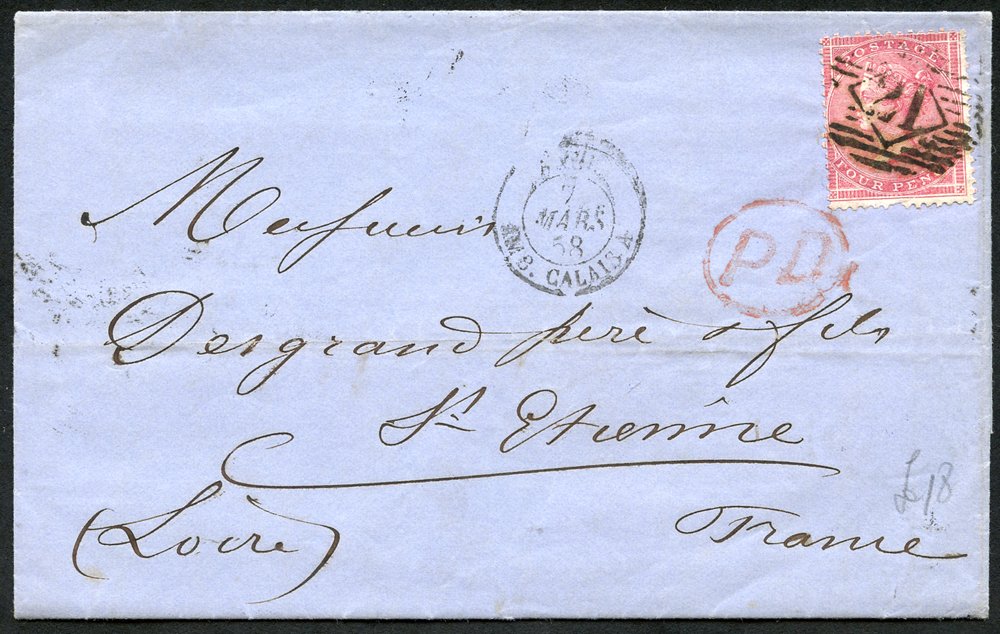 POSTAGE
FOUR PENCE
21
7
MARS
58
AMB. CALAIS A
PD
Messieurs
Desgrand père & fils
St Etienne
(Loire)
France
£18